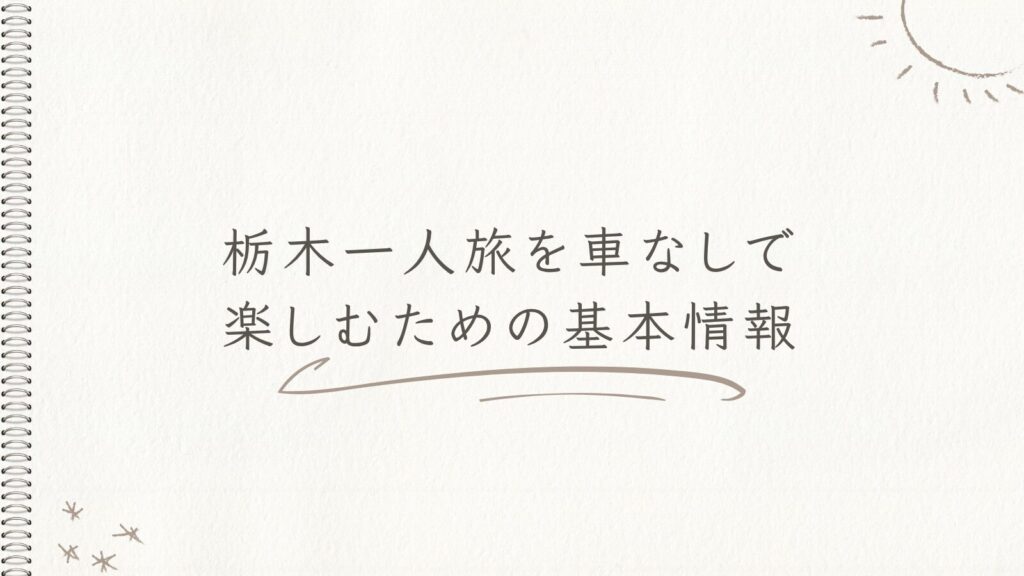 栃木一人旅を車なしで
楽しむための基本情報